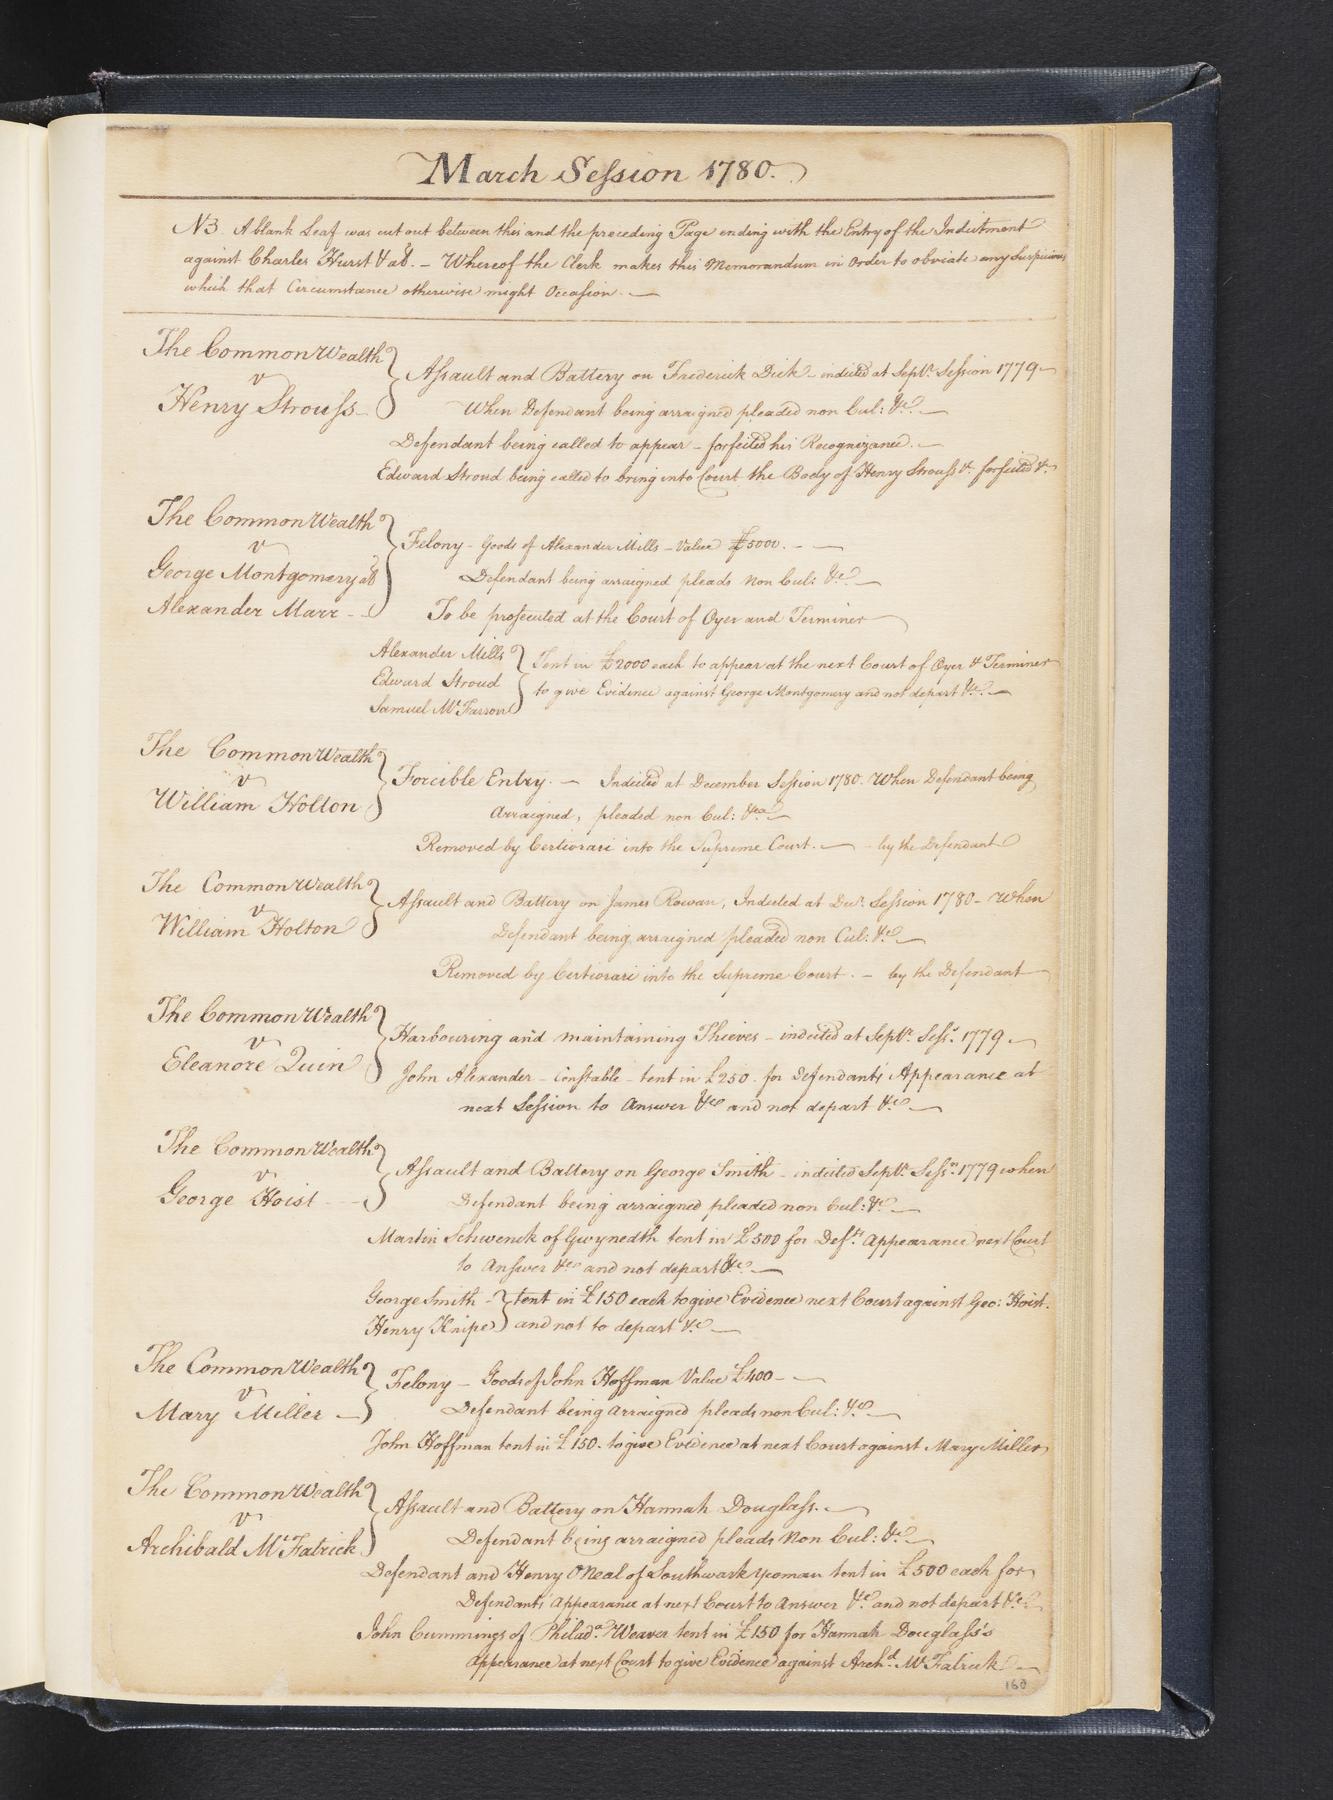 March Session 1780.
NB. A blank Leaf was cut out between this and the preceding Page ending with the Entry of the Indictment
against Charles Hurst & al. – Whereof the Clerk makes this Memorandum in Order to obviate any Suspicions
which that Circumstance otherwise might Occasion. —
The CommonWealth
v
Henry Strouss
Assault and Battery on Frederick Dick – indicted at Sept. Session 1779 –
When Defendant being arraigned pleaded non Cul: &c. —
Defendant being called to appear – forfeited his Recognizance. –
Edward Stroud being called to bring into Court the Body of Henry Strouss &c. forfeited &c.
The CommonWealth
v
George Montgomery als
Alexander Marr –
Felony – Goods of Alexander Mills – Value £5000. – —
Defendant being arraigned pleads Non Cul: &c. —
To be prosecuted at the Court of Oyer and Terminer
Alexander Mills
Edward Stroud
Samuel McFarron
Tent in £2000 each to appear at the next Court of Oyer & Terminer
to give Evidence against George Montgomery and not depart &c. —
The CommonWealth
v
William Holton
Forcible Entry. — Indicted at December Session 1780. When Defendant being
Arraigned, pleaded non Cul: &ca —
Removed by Certiorari into the Supreme Court. — – by the Defendant
The CommonWealth
v
William Holton
Assault and Battery on James Rowan, Indicted at Decr. Session 1780 – When
Defendant being arraigned pleaded non Cul: &c. —
Removed by Certiorari into the Supreme Court. – by the Defendant
The CommonWealth
v
Eleanore Quin
Harbouring and maintaining Thieves – indicted at Sept. Sess. 1779. —
John Alexander – Constable – tent in £250. for Defendant's Appearance at
next Session to Answer &c and not depart &c. —
The CommonWealth
v
George Hoist – –
Assault and Battery on George Smith – indicted Sept. Sessn. 1779 when
Defendant being arraigned pleaded non Cul: &c. —
Martin Schwenck of Gwynedth tent in £500 for Defts. Appearance next Court
to Answer &c and not depart &c. —
George Smith –
Henry Knipe
tent in £150 each to give Evidence next Court against Geo: Hoist.
and not to depart &c. —
The CommonWealth
v
Mary Miller –
Felony – Goods of John Hoffman Value £400 – —
Defendant being arraigned pleads non Cul: &c. —
John Hoffman tent in £150. to give Evidence at next Court against Mary Miller
The CommonWealth
v
Archibald McFatrick
Assault and Battery on Hannah Douglass. —
Defendant being arraigned pleads Non Cul: &c. —
Defendant and Henry ONeal of Southwark Yeoman tent in £500 each for
Defendants Appearance at next Court to Answer &c and not depart &c.
John Cummings of Philada. Weaver tent in £150 for Hannah Douglass's
Appearance at next Court to give Evidence against Archd. McFatrick —